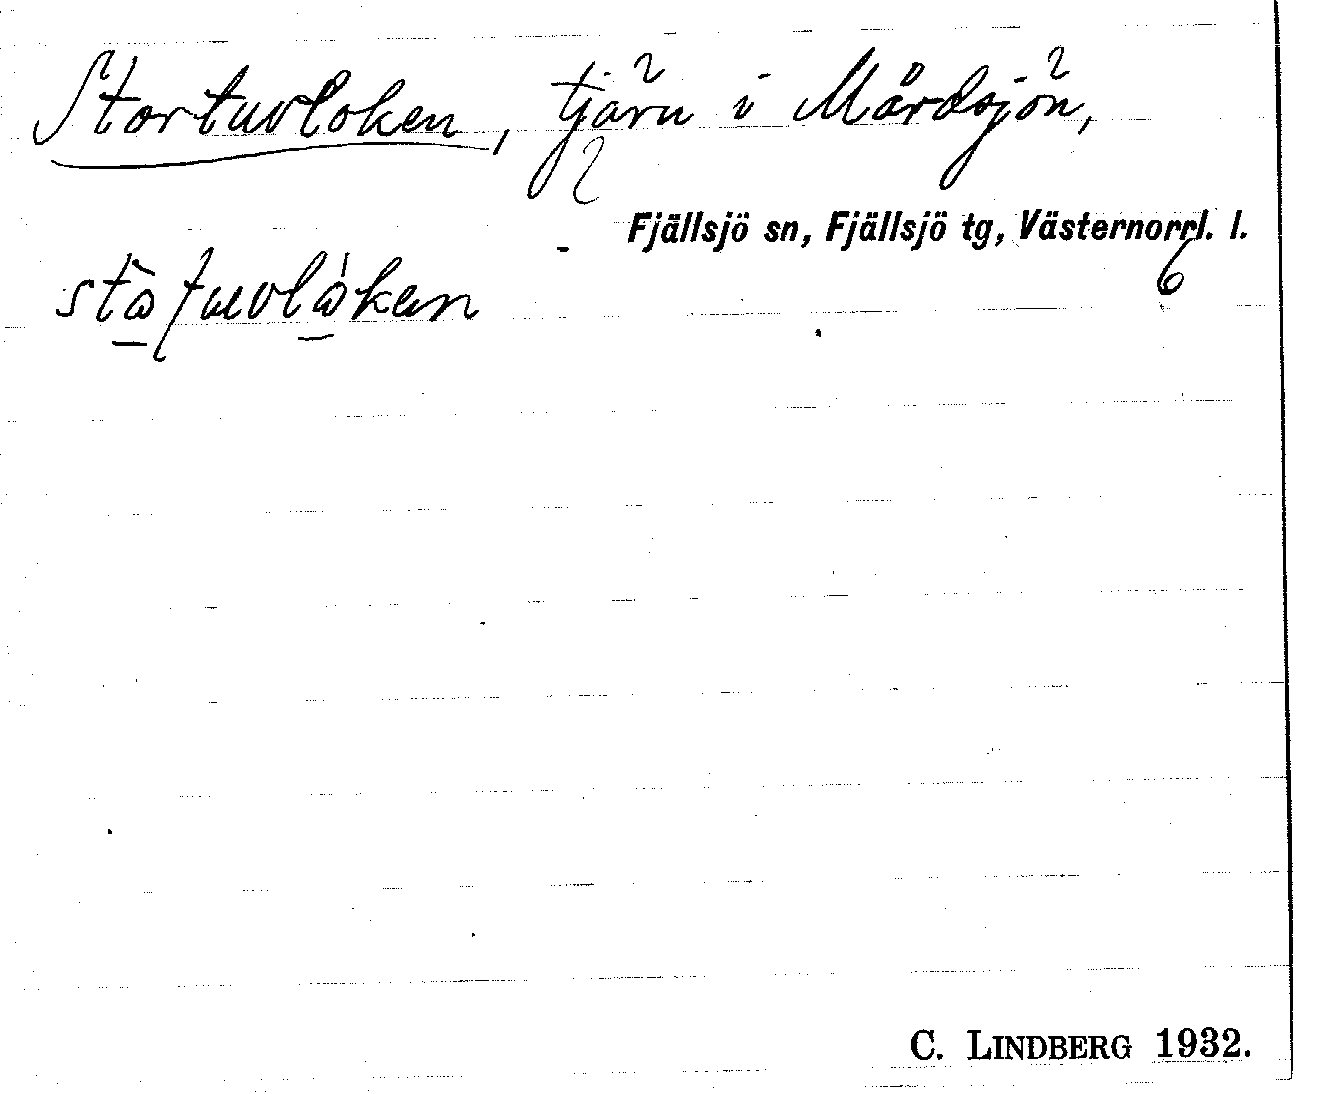 Stortuvloken, tjärn i Mårdsjön,
Fjällsjö sn, Fjällsjö tg, Västernorrl. l.
6
C. LINDBERG 1932.